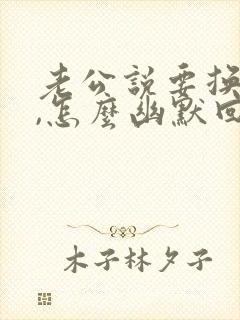 老公說要換
,怎麼幽默回
木子林夕子